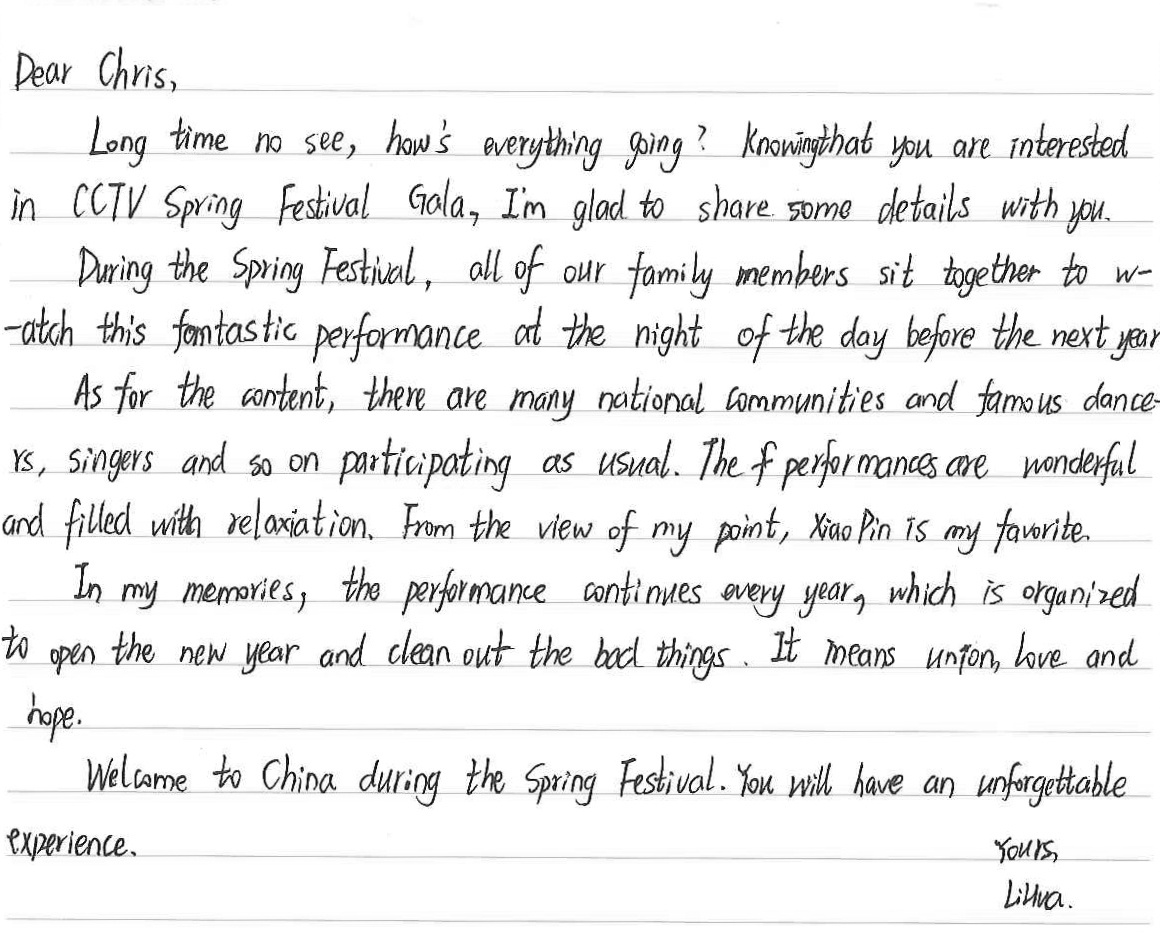 Dear Chris,
Long time no see, how's everything going? Knowingthat you are interested
in CCTV Spring Festival Gala, I'm glad to share some details with you.
During the Spring Festival, all of our family members sit together to w-
-atch this fantastic performance at the night of the day before the next year
As for the content, there are many national communities and famous dance-
rs, singers and so on participating as usual. The f performances are wonderful
and filled with relaxiation. From the view of my point, Xiao Pin is my favorite.
In my memories, the performance continues every year, which is organized
to open the new year and clean out the bad things. It means union, love and
hope.
Welcome to China during the Spring Festival. You will have an unforgettable
experience.
Yours,
LiHua.